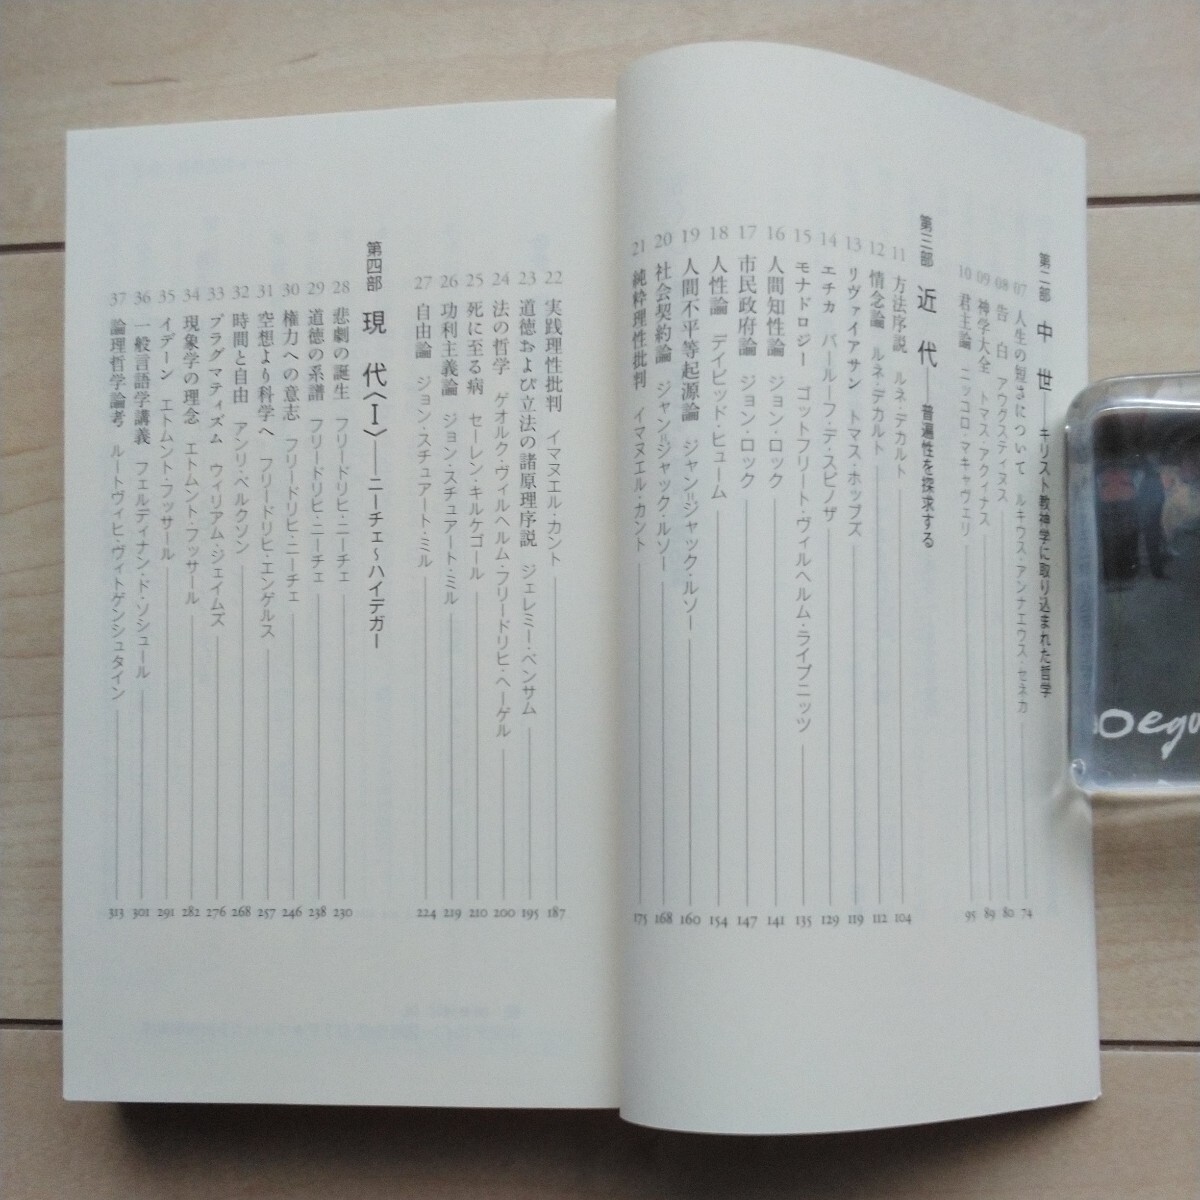 第二部 中世――キリスト教神学に取り込まれた哲学
07 人生の短さについて ルキウス・アンナエウス・セネカ 74
08 告白 アウグスティヌス 80
09 神学大全 トマス・アクィナス 89
10 君主論 ニッコロ・マキャヴェリ 95
第三部 近代――普遍性を探求する
11 方法序説 ルネ・デカルト 104
12 情念論 ルネ・デカルト 112
13 リヴァイアサン トマス・ホッブズ 119
14 エチカ バールーフ・デ・スピノザ 129
15 モナドロジー ゴットフリート・ヴィルヘルム・ライプニッツ 135
16 人間知性論 ジョン・ロック 141
17 市民政府論 ジョン・ロック 147
18 人性論 デイビッド・ヒューム 154
19 人間不平等起源論 ジャン=ジャック・ルソー 160
20 社会契約論 ジャン=ジャック・ルソー 168
21 純粋理性批判 イマヌエル・カント 175
22 実践理性批判 イマヌエル・カント 187
23 道徳および立法の諸原理序説 ジェレミー・ベンサム 195
24 法の哲学 ゲオルク・ヴィルヘルム・フリードリヒ・ヘーゲル 200
25 死に至る病 セーレン・キルケゴール 210
26 功利主義論 ジョン・スチュアート・ミル 219
27 自由論 ジョン・スチュアート・ミル 224
第四部 現代〈I〉――ニーチェ〜ハイデガー
28 悲劇の誕生 フリードリヒ・ニーチェ 230
29 道徳の系譜 フリードリヒ・ニーチェ 238
30 権力への意志 フリードリヒ・ニーチェ 246
31 空想より科学へ フリードリヒ・エンゲルス 257
32 時間と自由 アンリ・ベルクソン 268
33 プラグマティズム ウィリアム・ジェイムズ 276
34 現象学の理念 エトムント・フッサール 282
35 イデーン エトムント・フッサール 291
36 一般言語学講義 フェルディナン・ド・ソシュール 301
37 論理哲学論考 ルートヴィヒ・ヴィトゲンシュタイン 313